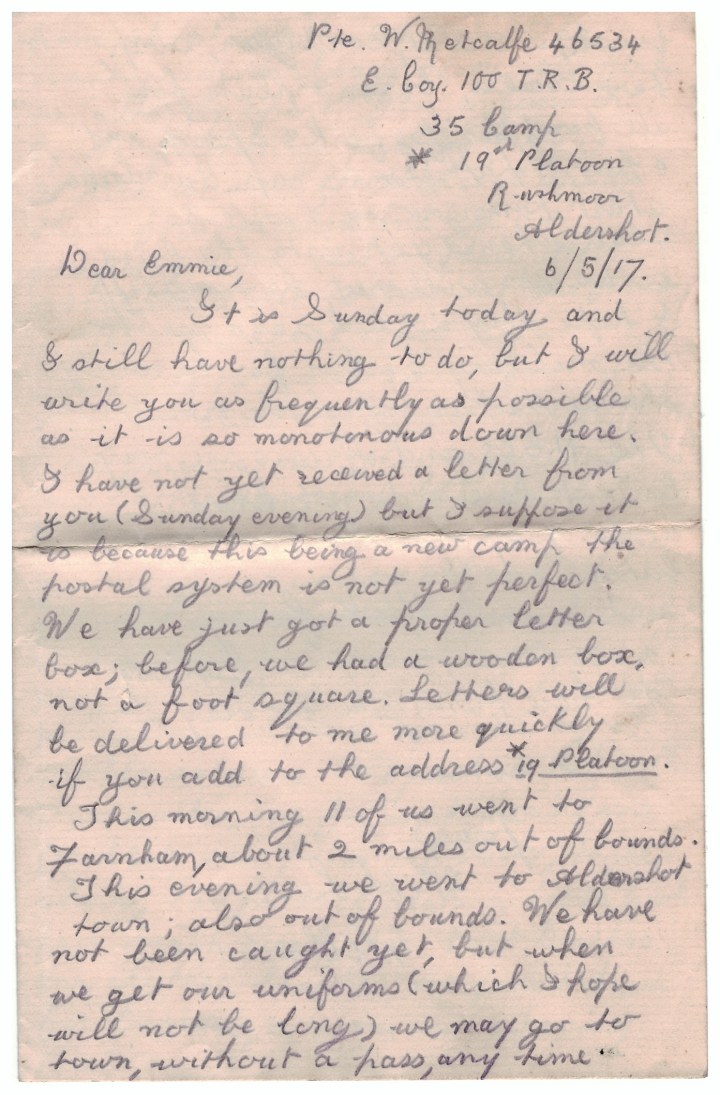 Pte. W. Metcalfe 46534
E. Coy. 100 T.R.B.
35 Camp
* 19 Platoon
Rushmoor
Aldershot.
6/5/17.
Dear Emmie,
It is Sunday today and
I still have nothing to do, but I will
write you as frequently as possible
as it is so monotonous down here.
I have not yet received a letter from
you (Sunday evening) but I suppose it
is because this being a new camp the
postal system is not yet perfect.
We have just got a proper letter
box; before, we had a wooden box,
not a foot square. Letters will
be delivered to me more quickly
if you add to the address *19 Platoon.
This morning 11 of us went to
Farnham, about 2 miles out of bounds.
This evening we went to Aldershot
town; also out of bounds. We have
not been caught yet, but when
we get our uniforms (which I hope
will not be long) we may go to
town, without a pass, any time.